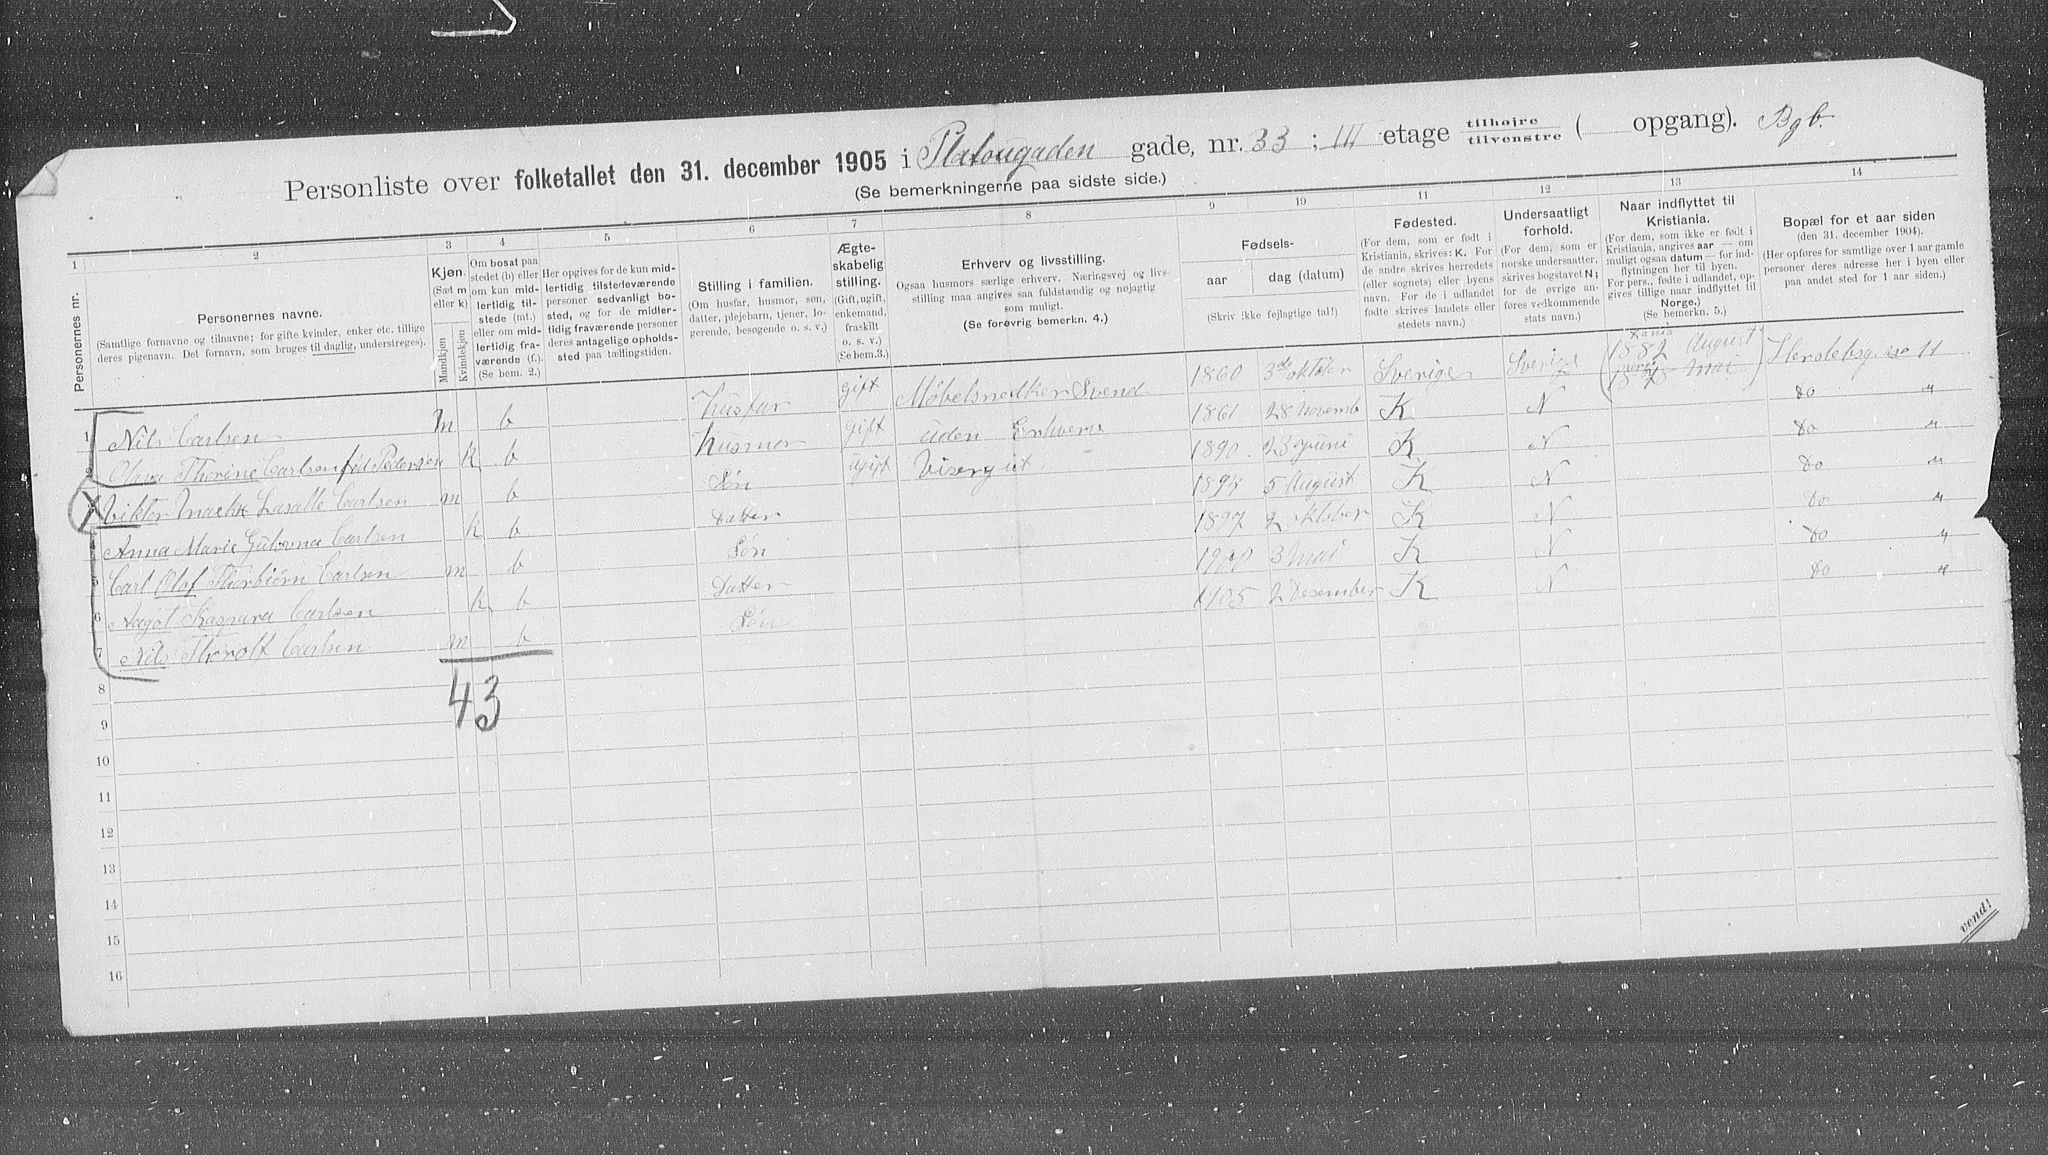 Personliste over folketallet den 31. december 1905 i Platougaden gade, nr. 33 ; III etage tilhøjre / tilvenstre ( opgang). Bgb.
(Se bemerkningerne paa sidste side.)
1 2 3 4 5 6 7 8 9 10 11 12 13 14
Personernes nr.
Personernes navne.
(Samtlige fornavne og tilnavne; for gifte kvinder, enker etc. tillige deres pigenavn. Det fornavn, som bruges til daglig, understreges).
Kjøn.
(Sæt m eller k)
Mandkjøn
Kvindekjøn
Om bosat paa stedet (b) eller om kun midlertidig tilstede (mt.) eller om midlertidig fraværende (f.).
(Se bem. 2.)
Her opgives for de kun midlertidig tilstedeværende personer sedvanligt bosted, og for de midlertidig fraværende personer deres antagelige opholdssted paa tællingstiden.
Stilling i familien.
(Om husfar, husmor, søn, datter, plejebarn, tjener, logerende, besøgende o. s. v.)
Ægteskabelig stilling.
(Gift, ugift, enkemand, fraskilt o. s. v.)
(Se bem.3.)
Erhverv og livsstilling.
Ogsaa husmors særlige erhverv. Næringsvej og livsstilling maa angives saa fuldstændig og nøjagtig som muligt.
(Se forøvrig bemerkn. 4.)
Fødsels-
aar
dag (datum)
(Skriv ikke fejlagtige tal!)
Fødested.
(For dem, som er født i Kristiania, skrives: K. For de andre skrives herredets (eller sognets) eller byens navn. For de i udlandet fødte skrives landets eller stedets navn.)
Undersaatligt forhold.
(For dem, som er norske undersaatter, skrives bogstavet N; for de øvrige anføres vedkommende stats navn.)
Naar indflyttet til Kristiania.
(For dem, som ikke er født i Kristiania, angives aar — om muligt ogsaa datum — for indflytningen her til byen. For pers., fødte i udlandet, opgives tillige naar indflyttet til Norge.)
(Se bemerkn. 5.)
Bopæl for et aar siden
(den 31. december 1904).
(Her opføres for samtlige over 1 aar gamle personer deres adresse her i byen eller paa andet sted for 1 aar siden.)
1 Nils Carlsen m b husfar gift Møbelsnedker Svend 1860 3die oktober Sverige Sverige 1882 August Mai Herslebsg. no 11
2 Olava Thorine Carlsen fød Pedersen k b husmor gift Uden Erhverv 1861 28 Novemb K N do "
3 Viktor Lasalle Carlsen m b Søn ugift Visergut 1890 23 Juni K N do "
4 Anna Marie Carlsen k b Datter 1894 5 August K N do "
5 Carl Olaf Thorbjørn Carlsen m b Søn 1897 2 oktober K N do "
6 Aagot Kaspara Carlsen k b Datter 1900 3 Mai K N do "
7 Nils Thorolf Carlsen m b Søn 1905 2 Desember K N do "
43
8
9
10
11
12
13
14
15
16
vend!